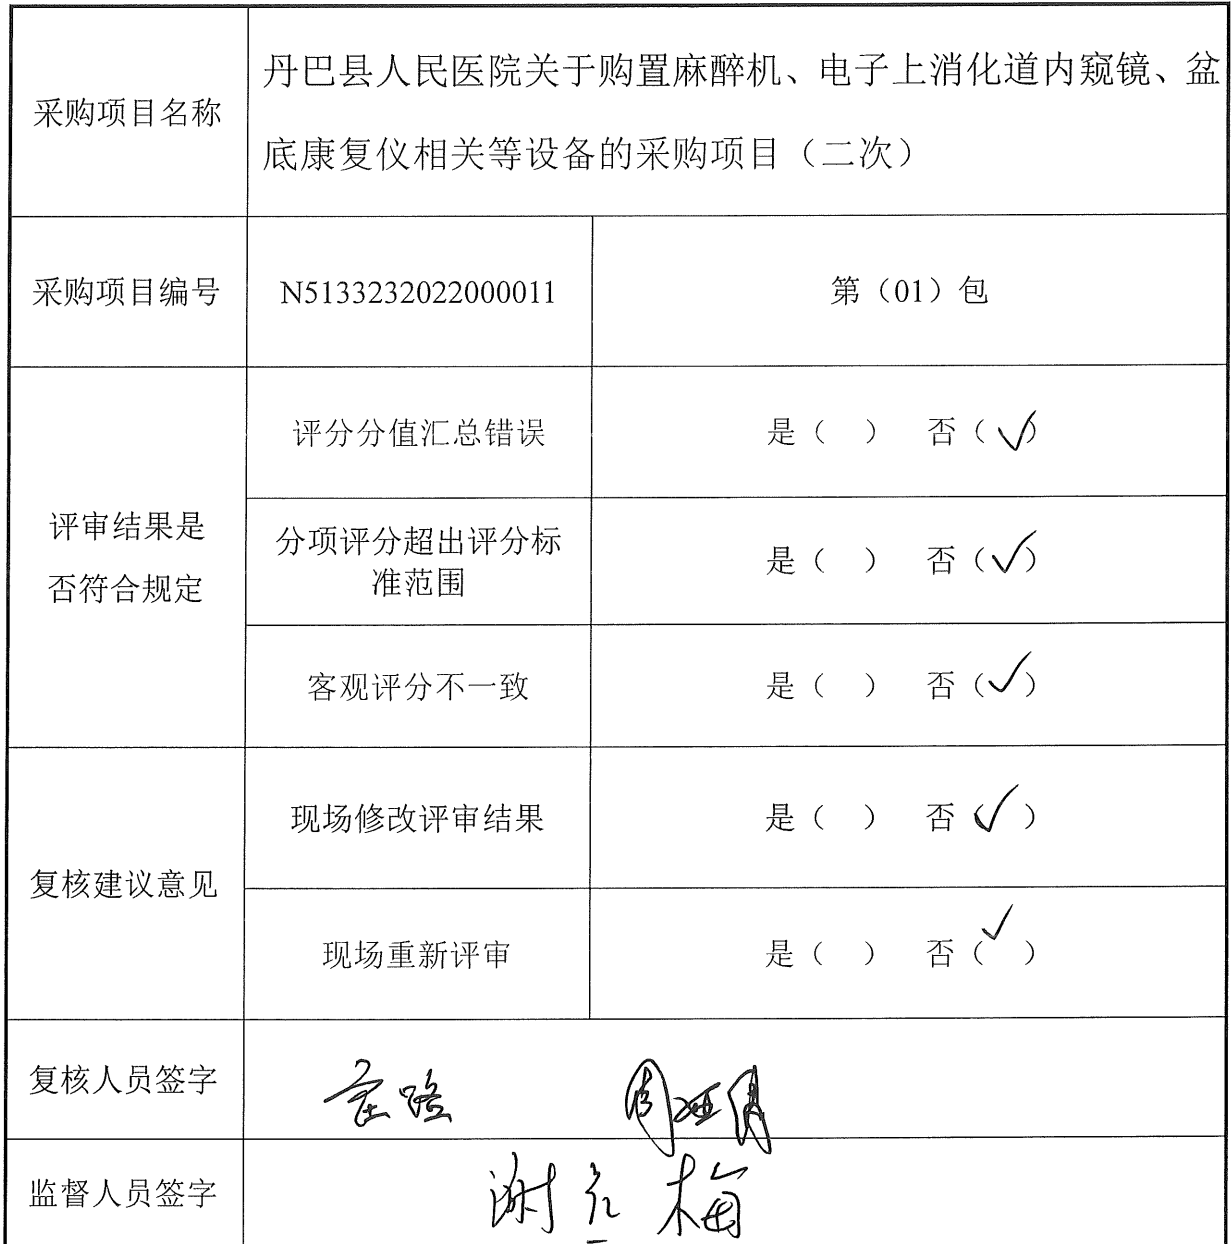 采购项目名称
丹巴县人民医院关于购置麻醉机、电子上消化道内窥镜、盆
底康复仪相关等设备的采购项目（二次）
采购项目编号
N5133232022000011
第（01）包
评审结果是
否符合规定
评分分值汇总错误
是（ ） 否（✓）
分项评分超出评分标
准范围
是（ ） 否（✓）
客观评分不一致
是（ ） 否（✓）
复核建议意见
现场修改评审结果
是（ ） 否（✓）
现场重新评审
是（ ） 否（✓）
复核人员签字
监督人员签字